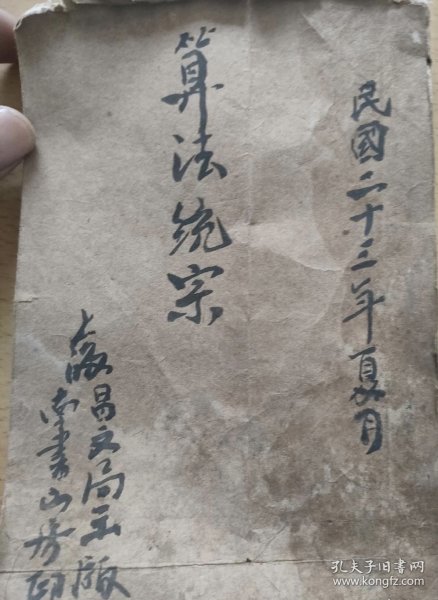 民國二十三年夏月
算法統宗
上海昌文局出版
南書山房印
孔夫子旧书网
www.kongfz.com